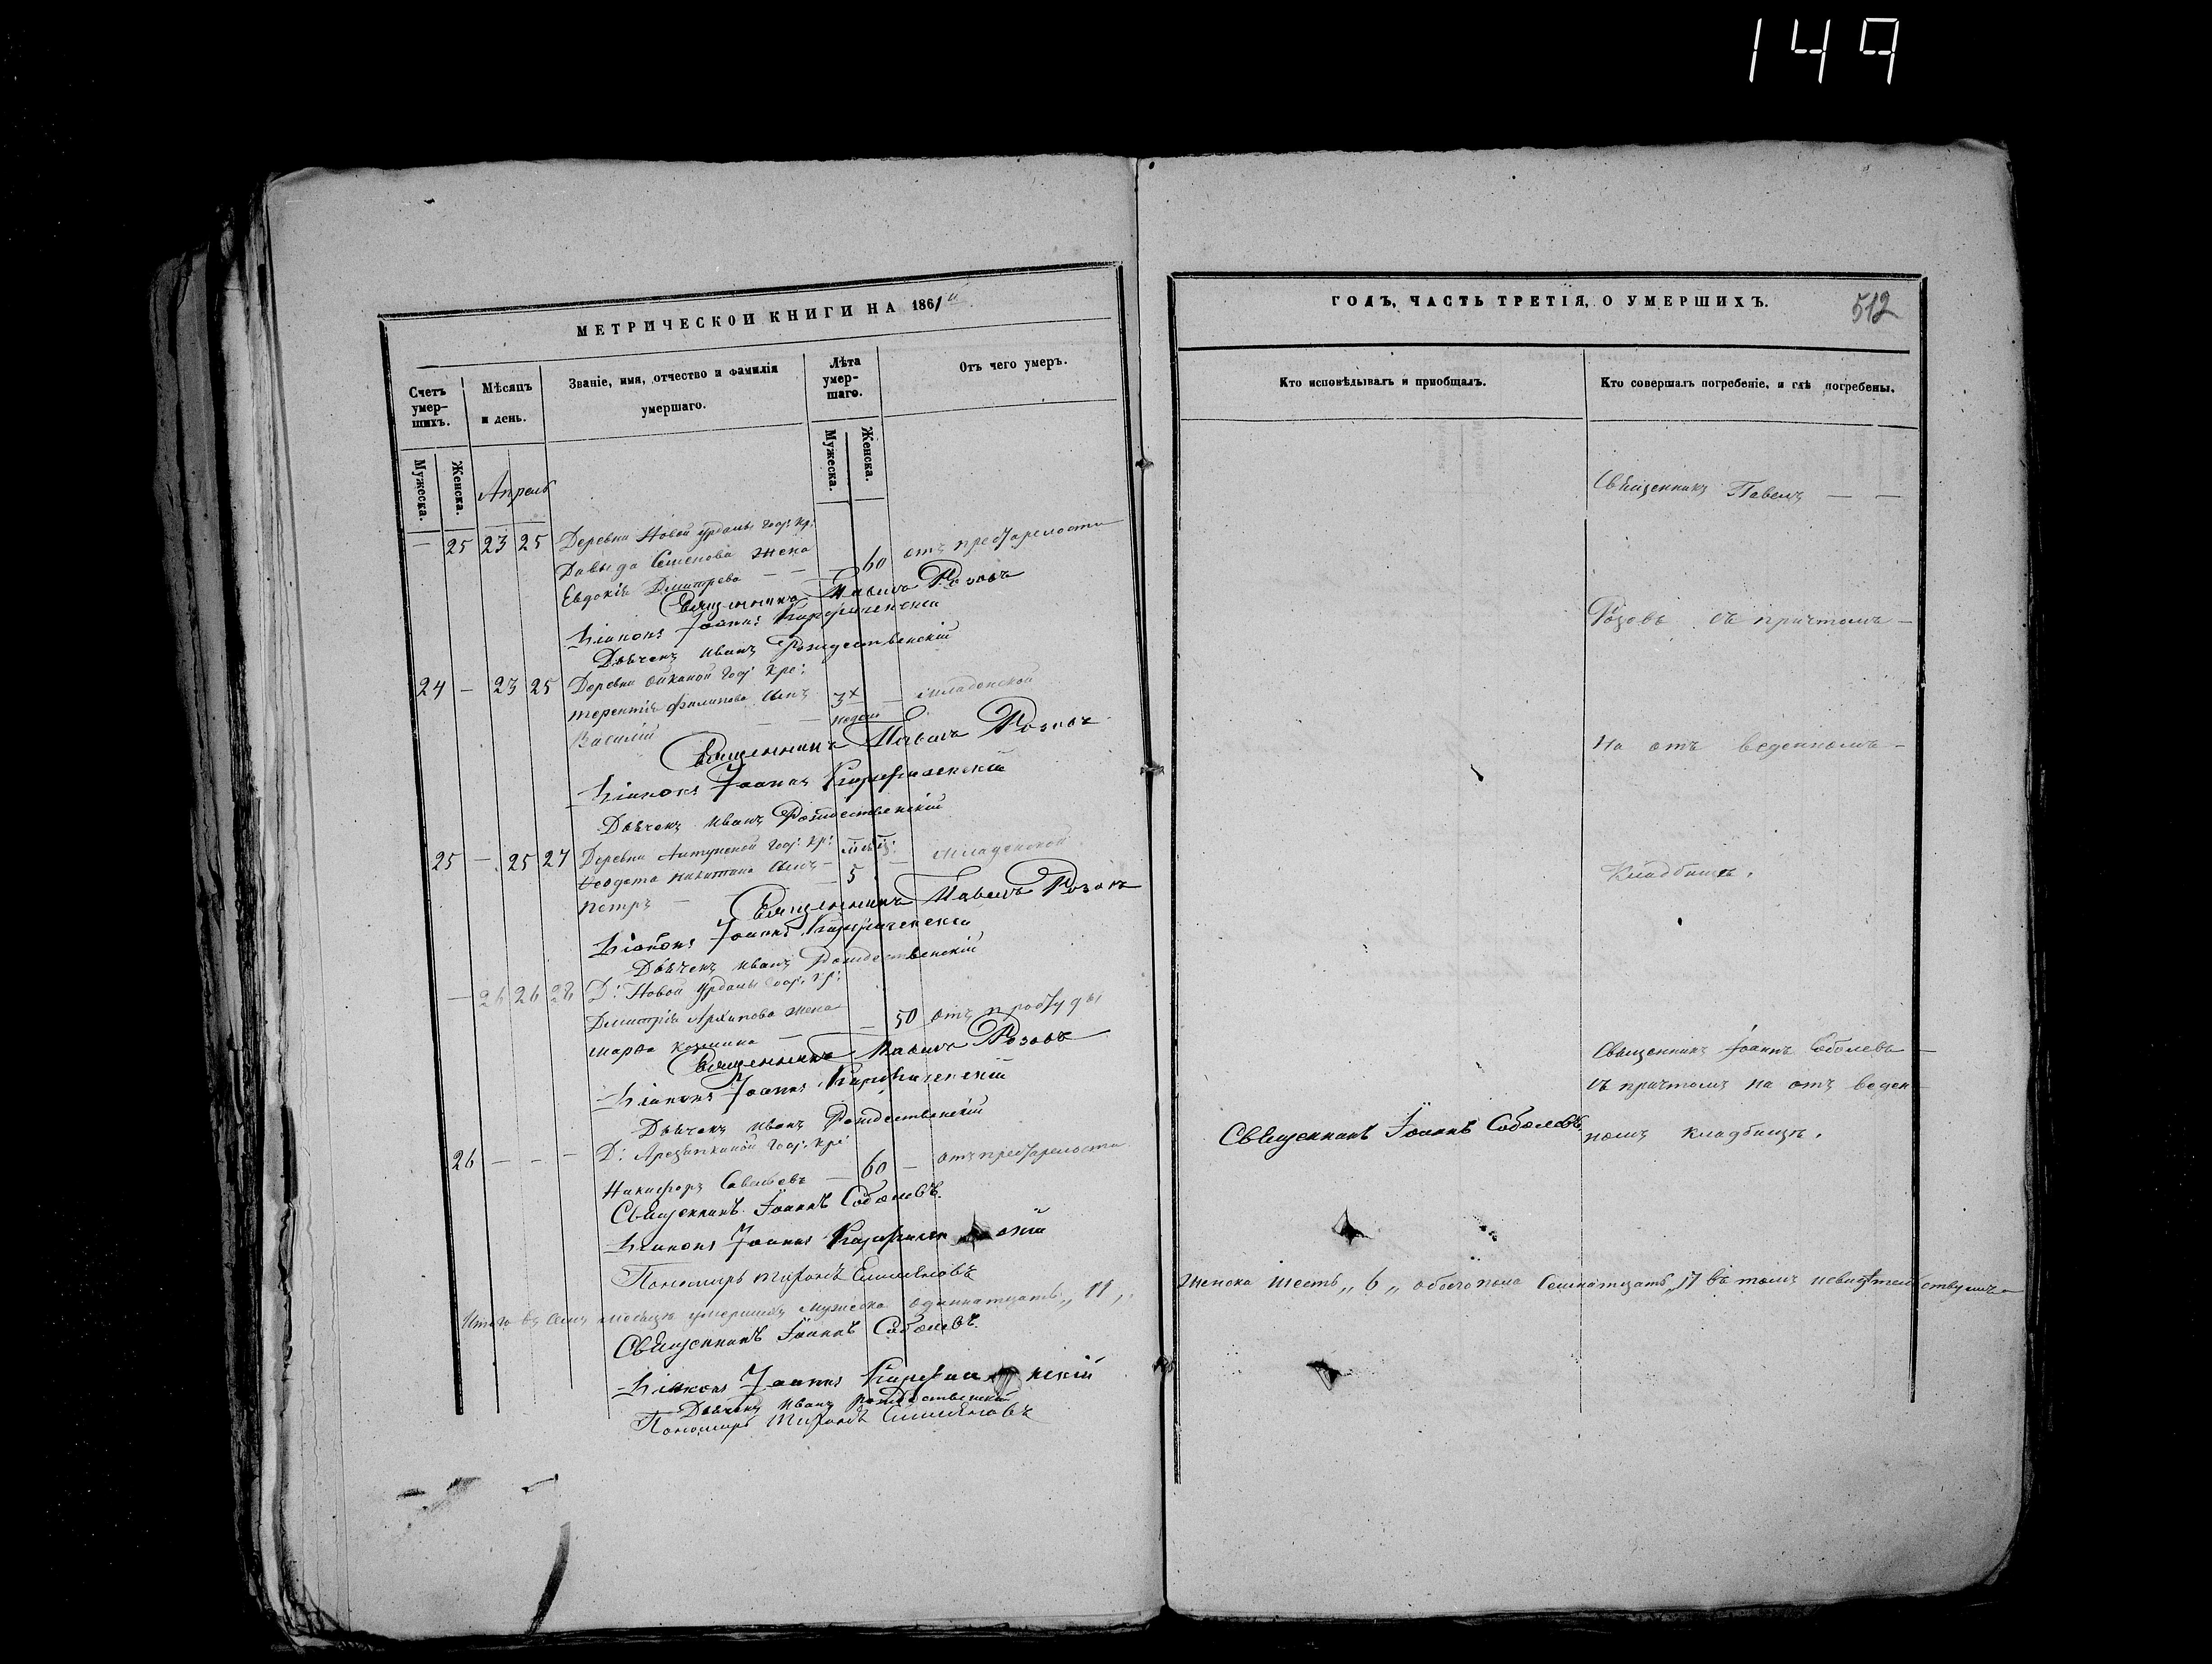 149
МЕТРИЧЕСКОЙ КНИГИ НА 1861й
Счетъ умер-шихъ.
Мѣсяцъ и день.
Званіе, имя, отчество и фамилія умершаго.
Лѣта умер-шаго.
Отъ чего умеръ.
Мужеска.
Женска.
Мужеска.
Женска.
Апрель
— 25 23 25 Деревни Новой Урдамы Гос: кр:
Давыда Семенова жена
Евдокія Дмитрева — — 60 отъ престарелости
Священникъ Павелъ Розовъ
Діаконъ Іоаннъ
Дьячекъ Иванъ Рождественскій
24 — 23 25 Деревни Гос: кре:
Терентія Филипова сынъ 3х младенской
Василій — — недель
Священникъ Павелъ Розовъ
Діаконъ Іоаннъ
Дьячекъ Иванъ Рождественскій
25 — 25 27 Деревни Гос: кр: мѣсяц:
Ѳеодота Никитина сынъ — 5 — младенской
Петръ —
Священникъ Павелъ Розовъ
Діаконъ Іоаннъ
Дьячекъ Иванъ Рождественскій
— 26 26 28 Д: Новой Урдамы Гос: кр:
Дмитрія Архипова жена
Марѳа Козмина — — 50 отъ простуды
Священникъ Павелъ Розовъ
Діаконъ Іоаннъ
Дьячекъ Иванъ Рождественскій
26 — — — Д: Гос: кре:
Никифоръ Савельевъ — 60 — отъ престарелости
Священникъ Іоаннъ Соболевъ.
Діаконъ Іоаннъ
Пономарь
Итого въ семъ месяце умершихъ мужеска одиннатцать „ 11 „
Священникъ Іоаннъ Соболевъ.
Діаконъ Іоаннъ
Дьячекъ Иванъ Рождественскій
Пономарь
ГОДЪ, ЧАСТЬ ТРЕТІЯ, О УМЕРШИХЪ.
512
Кто исповѣдывалъ и пріобщалъ.
Кто совершалъ погребеніе, и гдѣ погребены.
Священникъ Павелъ — —
Розовъ съ причтомъ —
на отъ веденномъ —
кладбище.
Священникъ Іоаннъ Соболевъ —
съ причтомъ на отъ веден-
Священникъ Іоаннъ Соболевъ
номъ кладбище.
женска шесть „ 6 „ обоего пола семнатцать „ 17 въ томъ и свидѣтельствуемъ